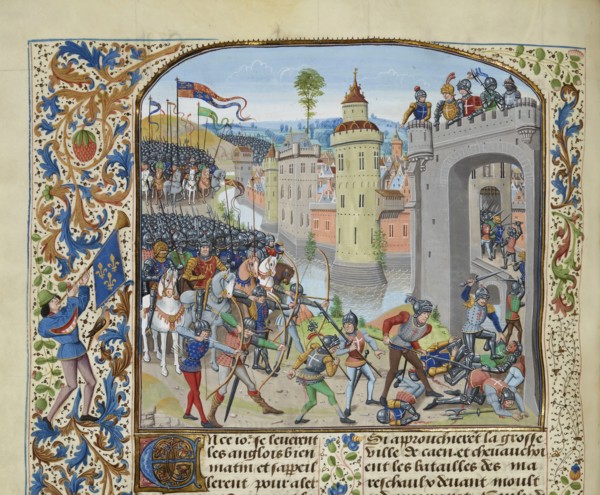 En ce ior. se leuerent
les anglois bien
matin et sappeil
lerent pour aler
Si approuchierent la grosse
ville de caen et cheuauchoi
ent les batailles des ma
reschaulx deuant moult